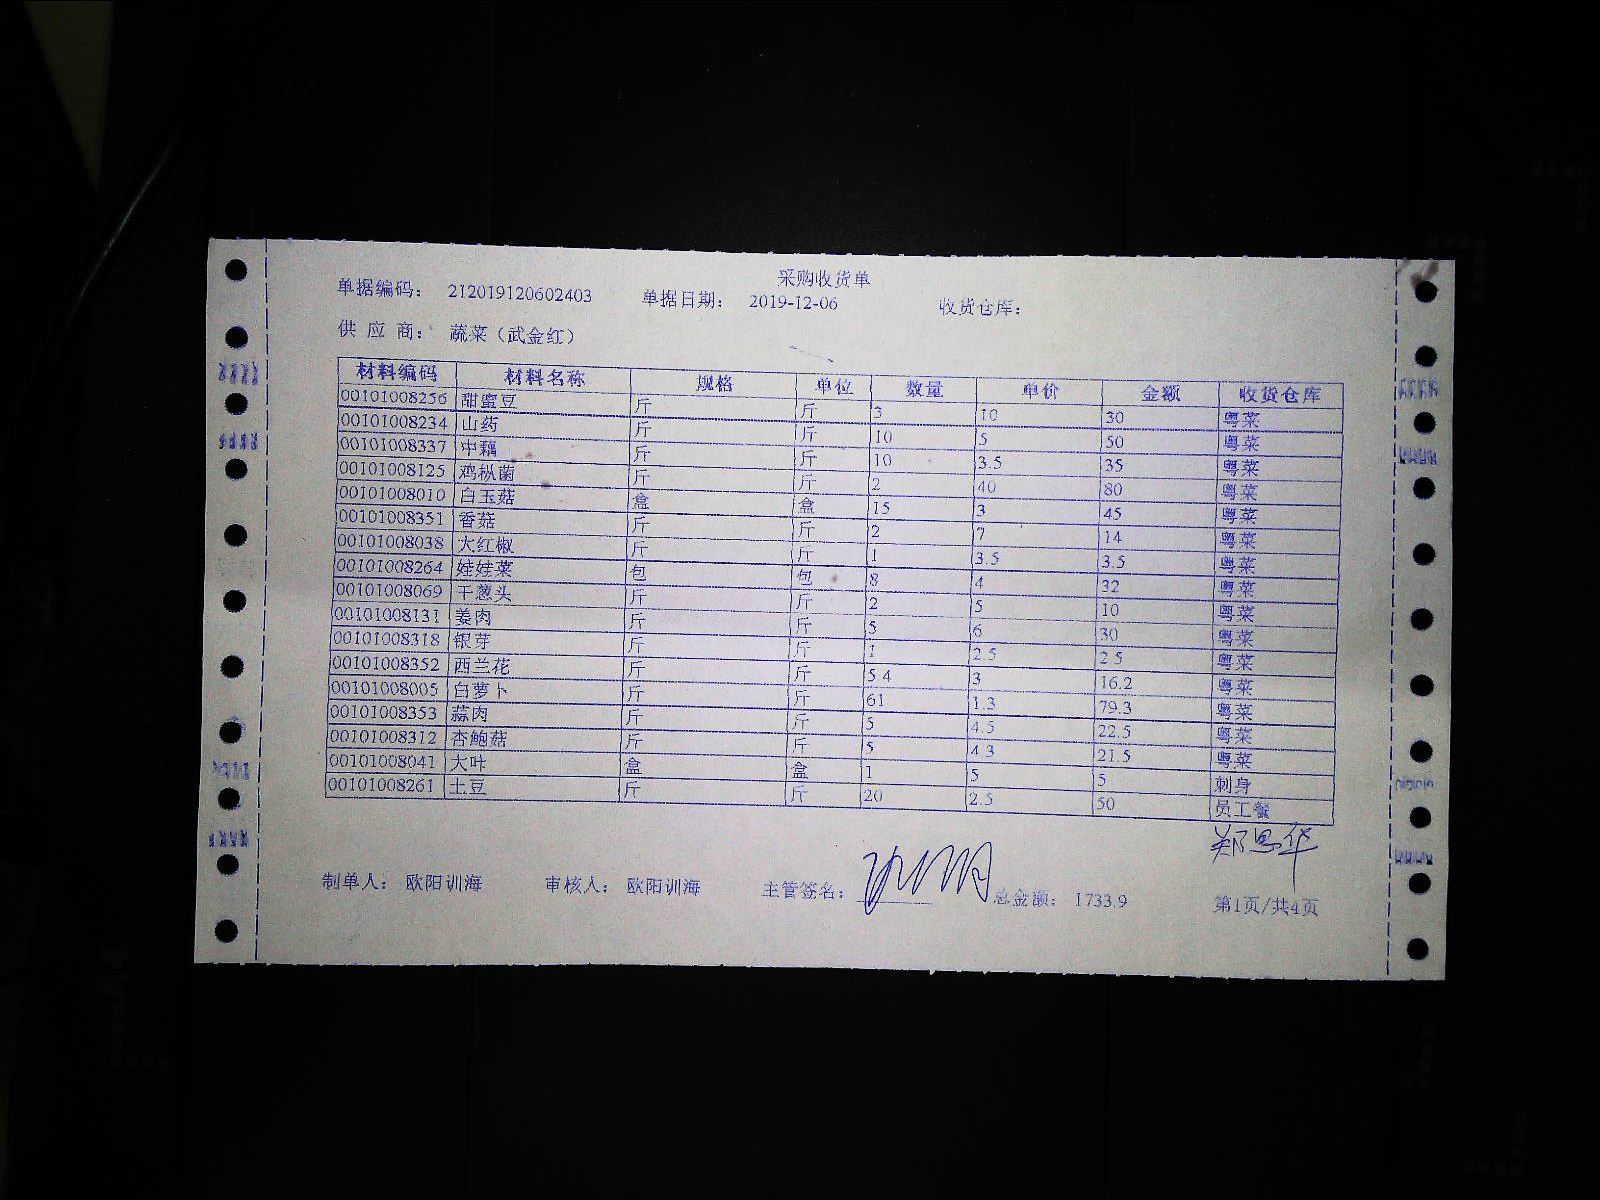 采购收货单
单据编码： 212019120602403 单据日期： 2019-12-06 收货仓库：
供 应 商： 蔬菜（武金红）
材料编码 材料名称 规格 单位 数量 单价 金额 收货仓库
00101008256 甜蜜豆 斤 斤 3 10 30 粤菜
00101008234 山药 斤 斤 10 5 50 粤菜
00101008337 中藕 斤 斤 10 3.5 35 粤菜
00101008125 鸡枞菌 斤 斤 2 40 80 粤菜
00101008010 白玉菇 盒 盒 15 3 45 粤菜
00101008351 香菇 斤 斤 2 7 14 粤菜
00101008038 大红椒 斤 斤 1 3.5 3.5 粤菜
00101008264 娃娃菜 包 包 8 4 32 粤菜
00101008069 干葱头 斤 斤 2 5 10 粤菜
00101008131 姜肉 斤 斤 5 6 30 粤菜
00101008318 银芽 斤 斤 1 2.5 2.5 粤菜
00101008352 西兰花 斤 斤 5.4 3 16.2 粤菜
00101008005 白萝卜 斤 斤 61 1.3 79.3 粤菜
00101008353 蒜肉 斤 斤 5 4.5 22.5 粤菜
00101008312 杏鲍菇 斤 斤 5 4.3 21.5 粤菜
00101008041 大叶 盒 盒 1 5 5 刺身
00101008261 土豆 斤 斤 20 2.5 50 员工餐
郑思华
制单人： 欧阳训海 审核人： 欧阳训海 主管签名： 总金额： 1733.9 第1页/共4页